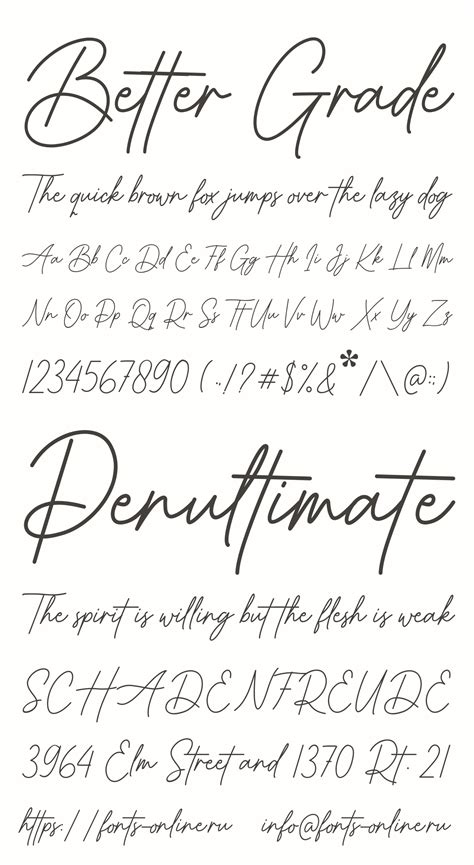 Better Grade
The quick brown fox jumps over the lazy dog
Aa Bb Cc Dd Ee Ff Gg Hh Ii Jj Kk Ll Mm
Nn Oo Pp Qq Rr Ss Tt Uu Vv Ww Xx Yy Zz
1234567890 (.,!?#$%&*/\@:;)
Penultimate
The spirit is willing but the flesh is weak
SCHADENFREUDE
3964 Elm Street and 1370 Rt. 21
https://fonts-online.ru info@fonts-online.ru